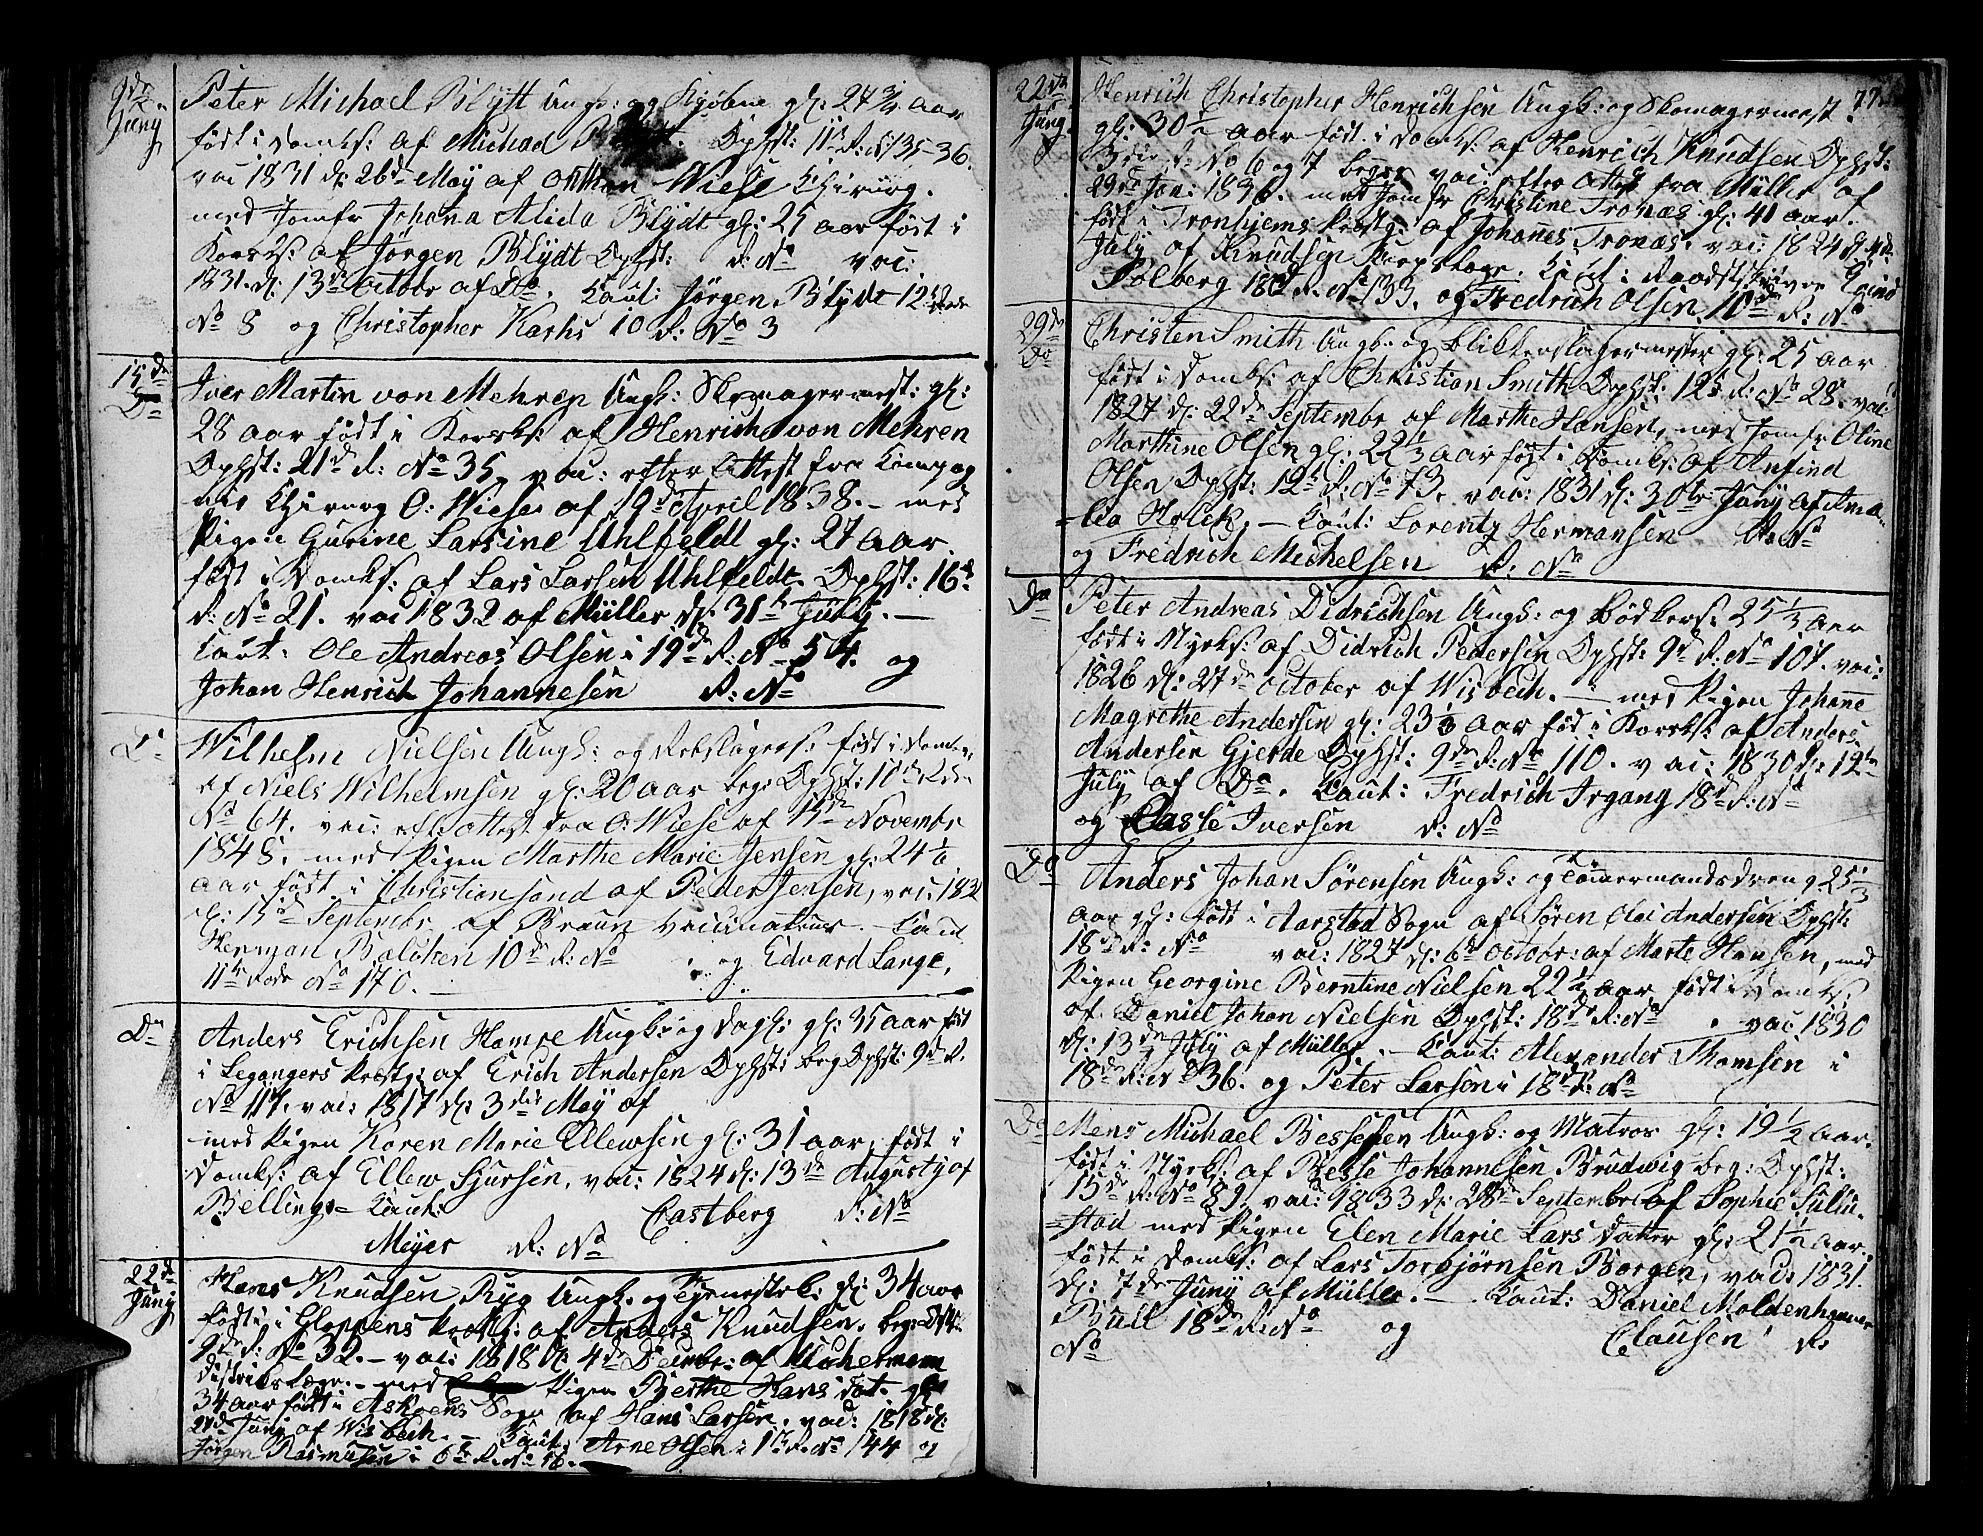 9de
Juny
Peter Michael Blytt Ungk: og Kjøbm gl: 27 3/4 Aar
født i Domks: af Michael Ophst: 11te R: No 135-36.
vac 1831 d: 26de May af Wiese Chirurg.
med Jomfr Johana Alida Blydt gl: 25 aar født i
Korsks: af Jørgen Blydt Ophst: R: No vac:
1831. d: 13de October af Do. Caut: Jørgen Blydt 12te Rode
No 8 og Christopher Kahrs 10 R: No 3
15de
Do
Iver Martin von Mehren Ungk: Skomagermest: gl:
28 aar født i Korsks: af Henrich von Mehren
Ophst: 21de R: No 35, vac: efter Attest fra Compag
nie Chirurg O: Wiese af 19de April 1838. - med
Pigen Gurine Larsine Uhlfeldt gl: 27 Aar
født i Domks: af Lars Larsen Uhlfeldt. Ophst: 16de
R: No 21. vac 1832 af Müller d: 31te July. -
Caut: Ole Andreas Olsen i 19de R: No 54. og
Johan Henrich Johannesen R: No
Do
Wilhelm Nielsen Ungk: og Rebslagers: født i Domks
af Niels Wilhelmsen gl: 20 aar beg: Ophst: 10de Rode
No 64. vac: eft: Attest fra O: Wiese af 15de Novembr
1848. med Pigen Marthe Marie Jensen gl: 24 1/2
aar født i Christiansand af Peder Jensen, vac: 183
d: 15de Septembr af Braun Vaccinateur. - Caut
Herman Balchen 10de R: No og Edvard Lange,
11te Rode No 170. -
Do
Anders Erichsen Hampe Ungk: og Dagl: gl: 35 aar født
i Legangers Prestg: af Erich Andersen Ophst: beg Ophst: 9de R.
No 117. vac: 1817 d: 3die May af
med Pigen Karen Marie Ellewsen gl: 31 aar, født i
Domks: af Ellew Sjursen, vac: 1824 d: 13de Augusty af
Belling. - Caut: Castberg R: No
Meyer R: No
22de
Juny
Hans Knudsen Ryg Ungk: og Tjenestek: gl: 34 aar
født i Gloppens Prestg: af Anders Knudsen. beg: Ophst:
9de R: No 32. - vac: 1818 d: 4de Decembr: af Uchermann
Districtslæge. - med Pigen Berthe Hans Dat. gl:
34 aar født i Askøens Sogn af Hans Larsen. vac: 1818 d:
Juny af Wisbech. - Caut: Arne Olsen i R: No 144 og
Jørgen Rasmusen i 6te R: No 16.
77.
22de
Juny
Henrich Christopher Henrichsen Ungk: og Skomagermest:
gl: 30 1/2 aar født i Domks: af Henrich Knudsen Ophst:
3die R: No 6 og 7 begge vac: efter Attest fra Müller af
29de Jan: 1836. med Jomfr Christine Tronæs gl: 41 aar.
født i Tronhjems Prestg: af Johanes Tronæs. vac: 1824 d: 4de
July af Knudsen Corpslæge. Caut: Raadstuskriver
Solberg 18de R: No 133. og Fredrich Olsen 10de R: No
29de
Do
Christen Smith Ungk: og Blikkenslagermester gl: 25 aar
født i Domks: af Christian Smith Ophst: 12te R: No 28. vac
1827 d: 22de Septembr af Marthe Hansen, med Jomfr Oline
Marthine Olsen gl: 22 1/3 aar født i Domks: af Anfind
Olsen Ophst: 12te R: No 73. vac: 1831 d: 30te Juny af Ama
=lia Holck. - Caut: Lorentz Hermansen R: No
og Fredrich Michelsen R: No
Do
Peter Andreas Didrichsen Ungk: og Bødkers: 25 1/3 Aar
født i Nyks: af Didrich Pedersen Ophst: 9de R: No 107. vac:
1826 d: 27de October af Wisbech. - med Pigen Johanne
Magrethe Andersen gl: 23 1/3 Aar født i Korsks: af Anders
Andersen Gjerde Ophst: 9de R: No 110. vac: 1830 d: 12te
July af Do. Caut: Fredrich Irgang 18de R: No
og Lasse Iversen R: No
Do
Anders Johan Sørensen Ungk: og Tømermandsdreng 25 1/3
aar gl: født i Aarstad Sogn af Søren Andersen Ophst:
18de R: No vac: 1827 d: 6te Octobr: af Marte Hansen, med
Pigen Georgine Berntine Nielsen 22 1/2 aar født i Domks:
af Daniel Johan Nielsen Ophst: 18de R: No . vac 1830
d: 13de July af Müller. - Caut: Alexander Thomsen i
18de R: No 36. og Peter Larsen i 18de R: No
Do
Mens Michael Bessesen Ungk: og Matros gl: 19 1/2 Aar.
født i Nyks: af Besse Johannesen Brudwig beg: Ophst:
15de R: No 89. vac: 1833 d: 28de Septembr af Sophie
=stad med Pigen Elen Marie Lars Datter gl: 21 1/2 Aar.
født i Domks: af Lars Torbjørnsen Borgen, vac: 1831.
d: 7de Juny af Müller. - Caut: Daniel Moldenhauer
Bull 18de R: No og Clausen R:
No